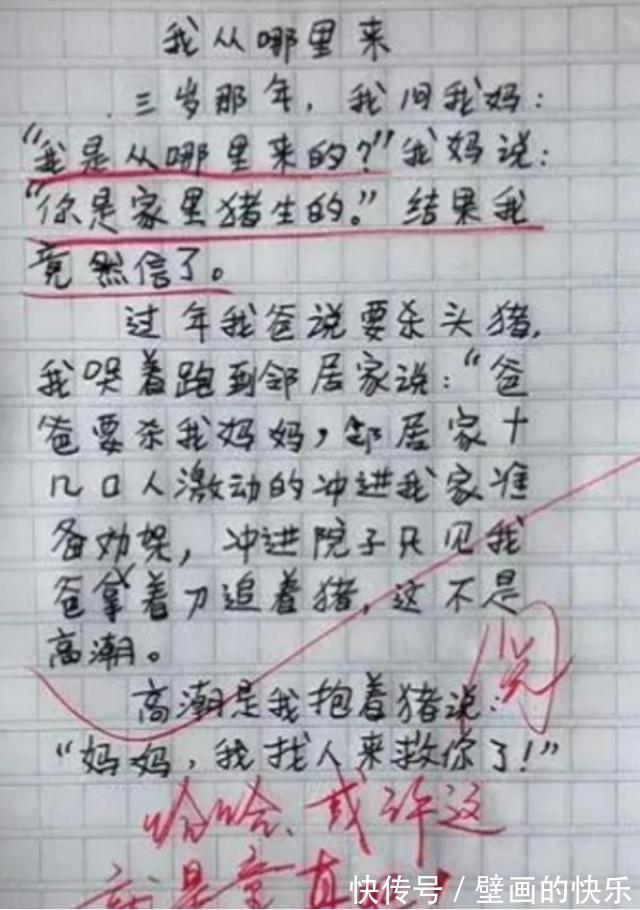 我从哪里来
三岁那年，我问我妈：
“我是从哪里来的？”我妈说：
“你是家里猪生的。”结果我
竟然信了。
过年我爸说要杀头猪，
我哭着跑到邻居家说：“爸
爸要杀我妈妈，邻居家十
几口人激动的冲进我家准
备劝架，冲进院子只见我
爸拿着刀追着猪，这不是
高潮。
阅
高潮是我抱着猪说：
“妈妈，我找人来救你了！”
哈哈、或许这
就是童真
快传号／壁画的快乐